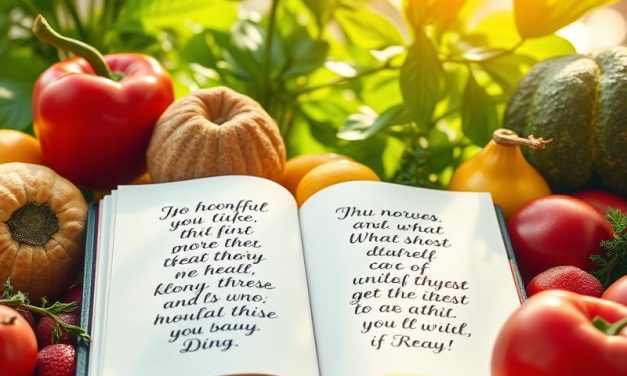 Jio hconfful
you tiuke,
thit fint
more thet
theat thory
me healt,
Klony, threse
and Is wno;
moulal thise
you bauy,
Ding.
Jhu norues.
and what
What shost
dtalrell
cac of
unilof thyest
get the itrest
to ax athil.
you'll wuid,
if Reay!